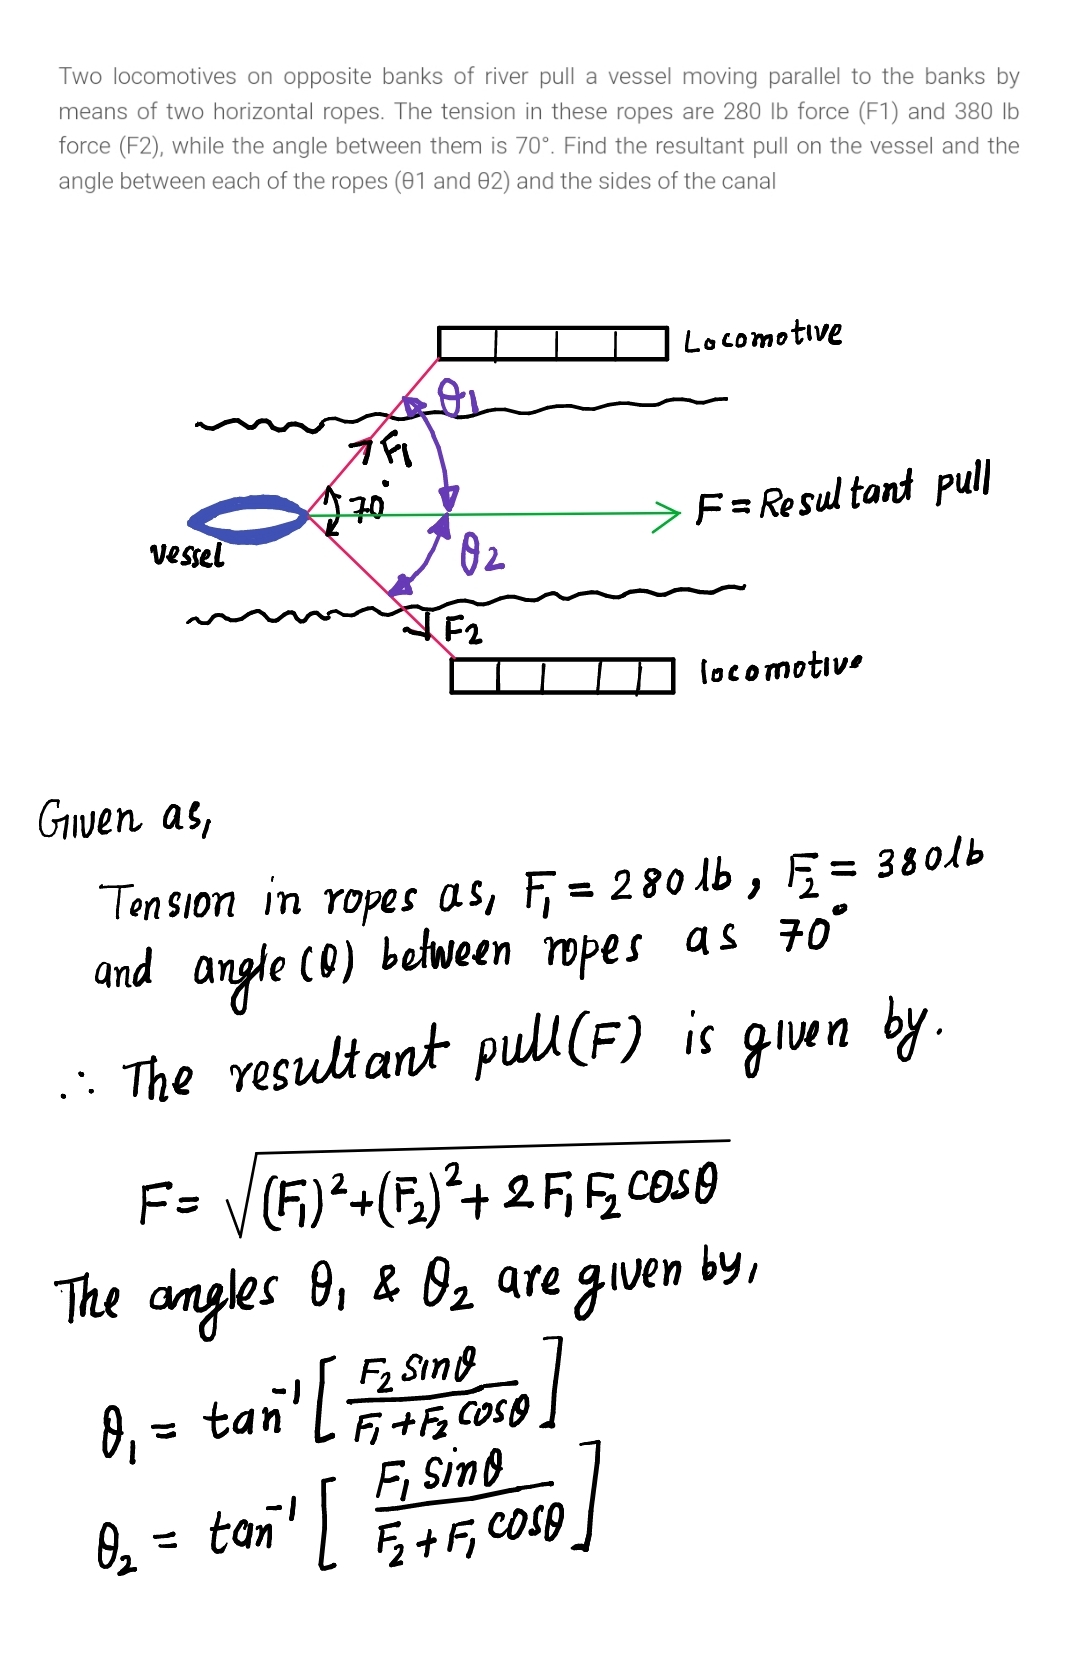 Two locomotives on opposite banks of river pull a vessel moving parallel to the banks by
means of two horizontal ropes. The tension in these ropes are 280 lb force (F1) and 380 lb
force (F2), while the angle between them is 70°. Find the resultant pull on the vessel and the
angle between each of the ropes (θ1 and θ2) and the sides of the canal
Locomotive
θ1
F1
70°
F = Resultant pull
vessel
θ2
F2
locomotive
Given as,
Tension in ropes as, F₁ = 280 lb, F₂ = 380lb
and angle (θ) between ropes as 70°
∴ The resultant pull (F) is given by.
F = √((F₁)² + (F₂)² + 2 F₁ F₂ cosθ)
The angles θ₁ & θ₂ are given by,
θ₁ = tan⁻¹ [F₂ sinθ / F₁ + F₂ cosθ]
θ₂ = tan⁻¹ [F₁ sinθ / F₂ + F₁ cosθ]